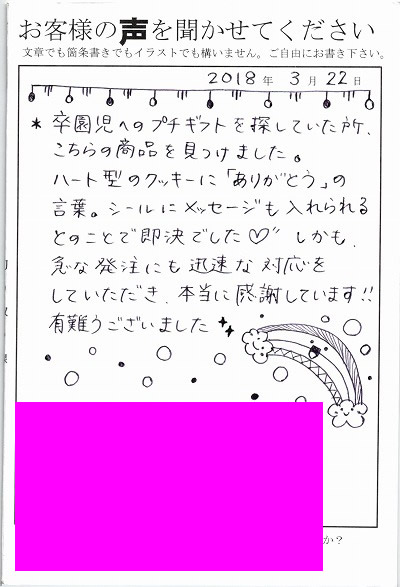 お客様の声を聞かせてください
文章でも箇条書きでもイラストでも構いません。ご自由にお書き下さい。
2018年 3月 22日
* 卒園児へのプチギフトを探していた所、
こちらの商品を見つけました。
ハート型のクッキーに「ありがとう」の
言葉。シールにメッセージも入れられる
とのことで即決でした♡" しかも、
急な発注にも迅速な対応を
していただき、本当に感謝しています!!
有難うございました
か?